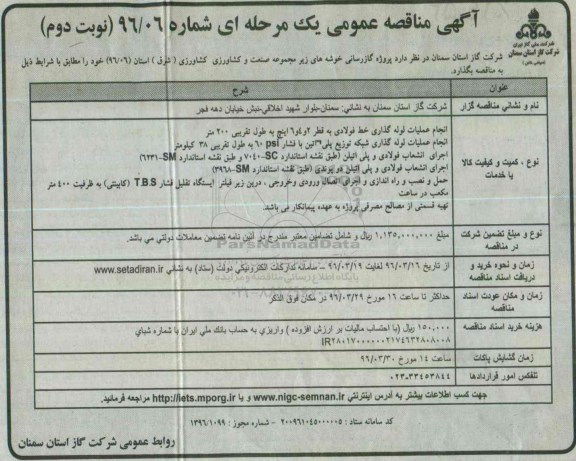 آگهی مناقصه عمومی یک مرحله ای شماره ۹۶/۰۶ (نوبت دوم)
شرکت ملی گاز ایران
شرکت گاز استان سمنان
شرکت گاز استان سمنان در نظر دارد پروژه گازرسانی خوشه های زیر مجموعه صنعت و کشاورزی کشاورزی ( شرق ) استان (۹۶/۰۶) خود را مطابق با شرایط ذیل
به مناقصه بگذارد.
عنوان
شرح
نام و نشانی مناقصه گزار
شرکت گاز استان سمنان به نشانی: سمنان-بلوار شهید اخلاقی-نبش خیابان دهه فجر
نوع ، کمیت و کیفیت کالا
یا خدمات
انجام عملیات لوله گذاری خط فولادی به قطر ۲و۴و۶ اینچ به طول تقریبی ۲۰۰ متر
انجام عملیات لوله گذاری شبکه توزیع پلی اتیلن با فشار ۶۰ psi به طول تقریبی ۳۸ کیلومتر
اجرای انشعاب فولادی و پلی اتیلن (طبق نقشه استاندارد ۷۰۴۰-SC و طبق نقشه استاندارد ۶۲۳۱-SM)
اجرای انشعاب فولادی و پلی اتیلن دو پوندی (طبق نقشه استاندارد ۳۹۶۸-SM)
حمل و نصب و راه اندازی و اجرای اتصال ورودی وخروجی ، درین زیر فیلتر ایستگاه تقلیل فشار T.B.S (کابینتی) به ظرفیت ۴۰۰ متر
مکعب در ساعت
تهیه قسمتی از مصالح مصرفی پروژه به عهده پیمانکار می باشد.
نوع و مبلغ تضمین شرکت
در مناقصه
مبلغ ۱,۱۳۵,۰۰۰,۰۰۰ ریال و شامل تضامین معتبر مندرج در آئین نامه تضمین معاملات دولتی می باشد.
زمان و نحوه خرید و
دریافت اسناد مناقصه
از تاریخ ۹۶/۰۳/۱۶ لغایت ۹۶/۰۳/۱۹ – سامانه تدارکات الکترونیکی دولت (ستاد) به نشانی www.setadiran.ir
زمان و مکان عودت اسناد
مناقصه
حداکثر تا ساعت ۱۶ مورخ ۹۶/۰۳/۲۹ در مکان فوق الذکر
هزینه خرید اسناد مناقصه
۱۵۰,۰۰۰ ریال (با احتساب مالیات بر ارزش افزوده ) واریزی به حساب بانک ملی ایران با شماره شبای
زمان گشایش پاکات
ساعت ۱۴ مورخ ۹۶/۰۳/۳۰
تلفکس امور قراردادها
۰۲۳-۳۳۴۵۳۸۴۴
جهت کسب اطلاعات بیشتر به آدرس اینترنتی www.nigc-semnan.ir و یا http://iets.mporg.ir مراجعه فرمائید.
کد سامانه ستاد : ۲۰۰۹۶۱۰۴۵۰۰۰۰۰۵ - شماره مجوز : ۱۳۹۶/۱۰۹۹
روابط عمومی شرکت گاز استان سمنان
ParsNamadData
پایگاه اطلاع رسانی مناقصه و مزایده